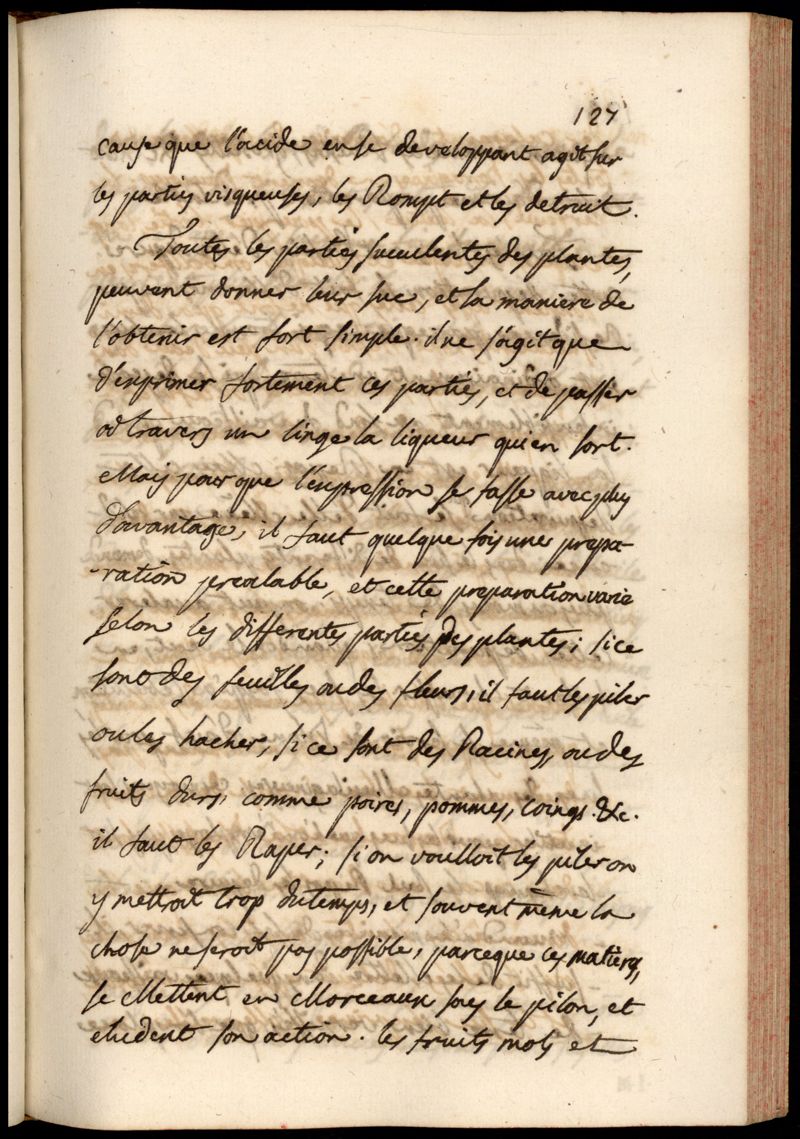 127
cause que l'acide en se developpant agit sur
les parties visqueuses, les Rompt et les detruit.
Toutes les parties succulentes des plantes,
peuvent donner leur suc, et la maniere de
l'obtenir est fort simple. il ne s'agit que
d'exprimer fortement ces parties, et de passer
a travers un linge la liqueur qui en sort.
Mais pour que l'expression se fasse avec plus
d'avantage, il faut quelque fois une prepa-
-ration prealable, et cette preparation varie
selon les differentes parties des plantes; si ce
sont des feuilles ou des fleurs, il faut les piler
ou les hacher, si ce sont des Racines, ou des
fruits durs, comme poires, pommes, coings. &c.
il faut les Raper; si on voulloit les piler on
y mettroit trop du temps, et souvent même la
chose ne seroit pas possible, parceque ces matieres,
se Mettent en Morceaux sous le pilon, et
eludent son action. les fruits mols et